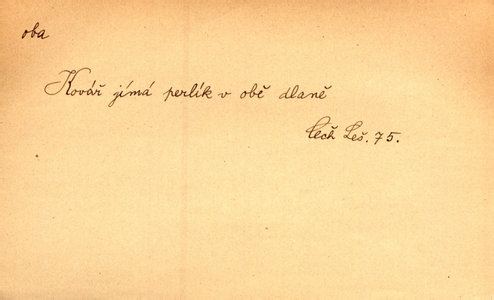 oba
Kovář jímá perlík v obě dlaně
Čech Leš. 75.